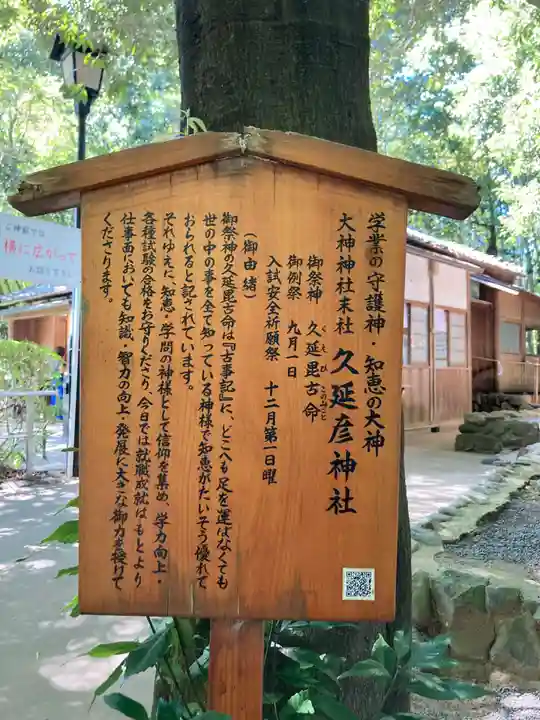 学業の守護神・知恵の大神
大神神社末社 久延彦神社
御祭神 久延毘古命
くえび このみこと
御例祭 九月一日
入試安全祈願祭 十二月第一日曜
(御由緒)
御祭神の久延毘古命は『古事記』に、どこへも足を運ばなくても
世の中の事を全て知っている神様で知恵がたいそう優れて
おられると記されています。
それゆえに、知恵・学問の神様として信仰を集め、学力向上・
各種試験の合格をお守りくださり、今日では就職成就はもとより
仕事面においても知識、智力の向上・発展に大きな御力を授けて
くださります。
横に広がって